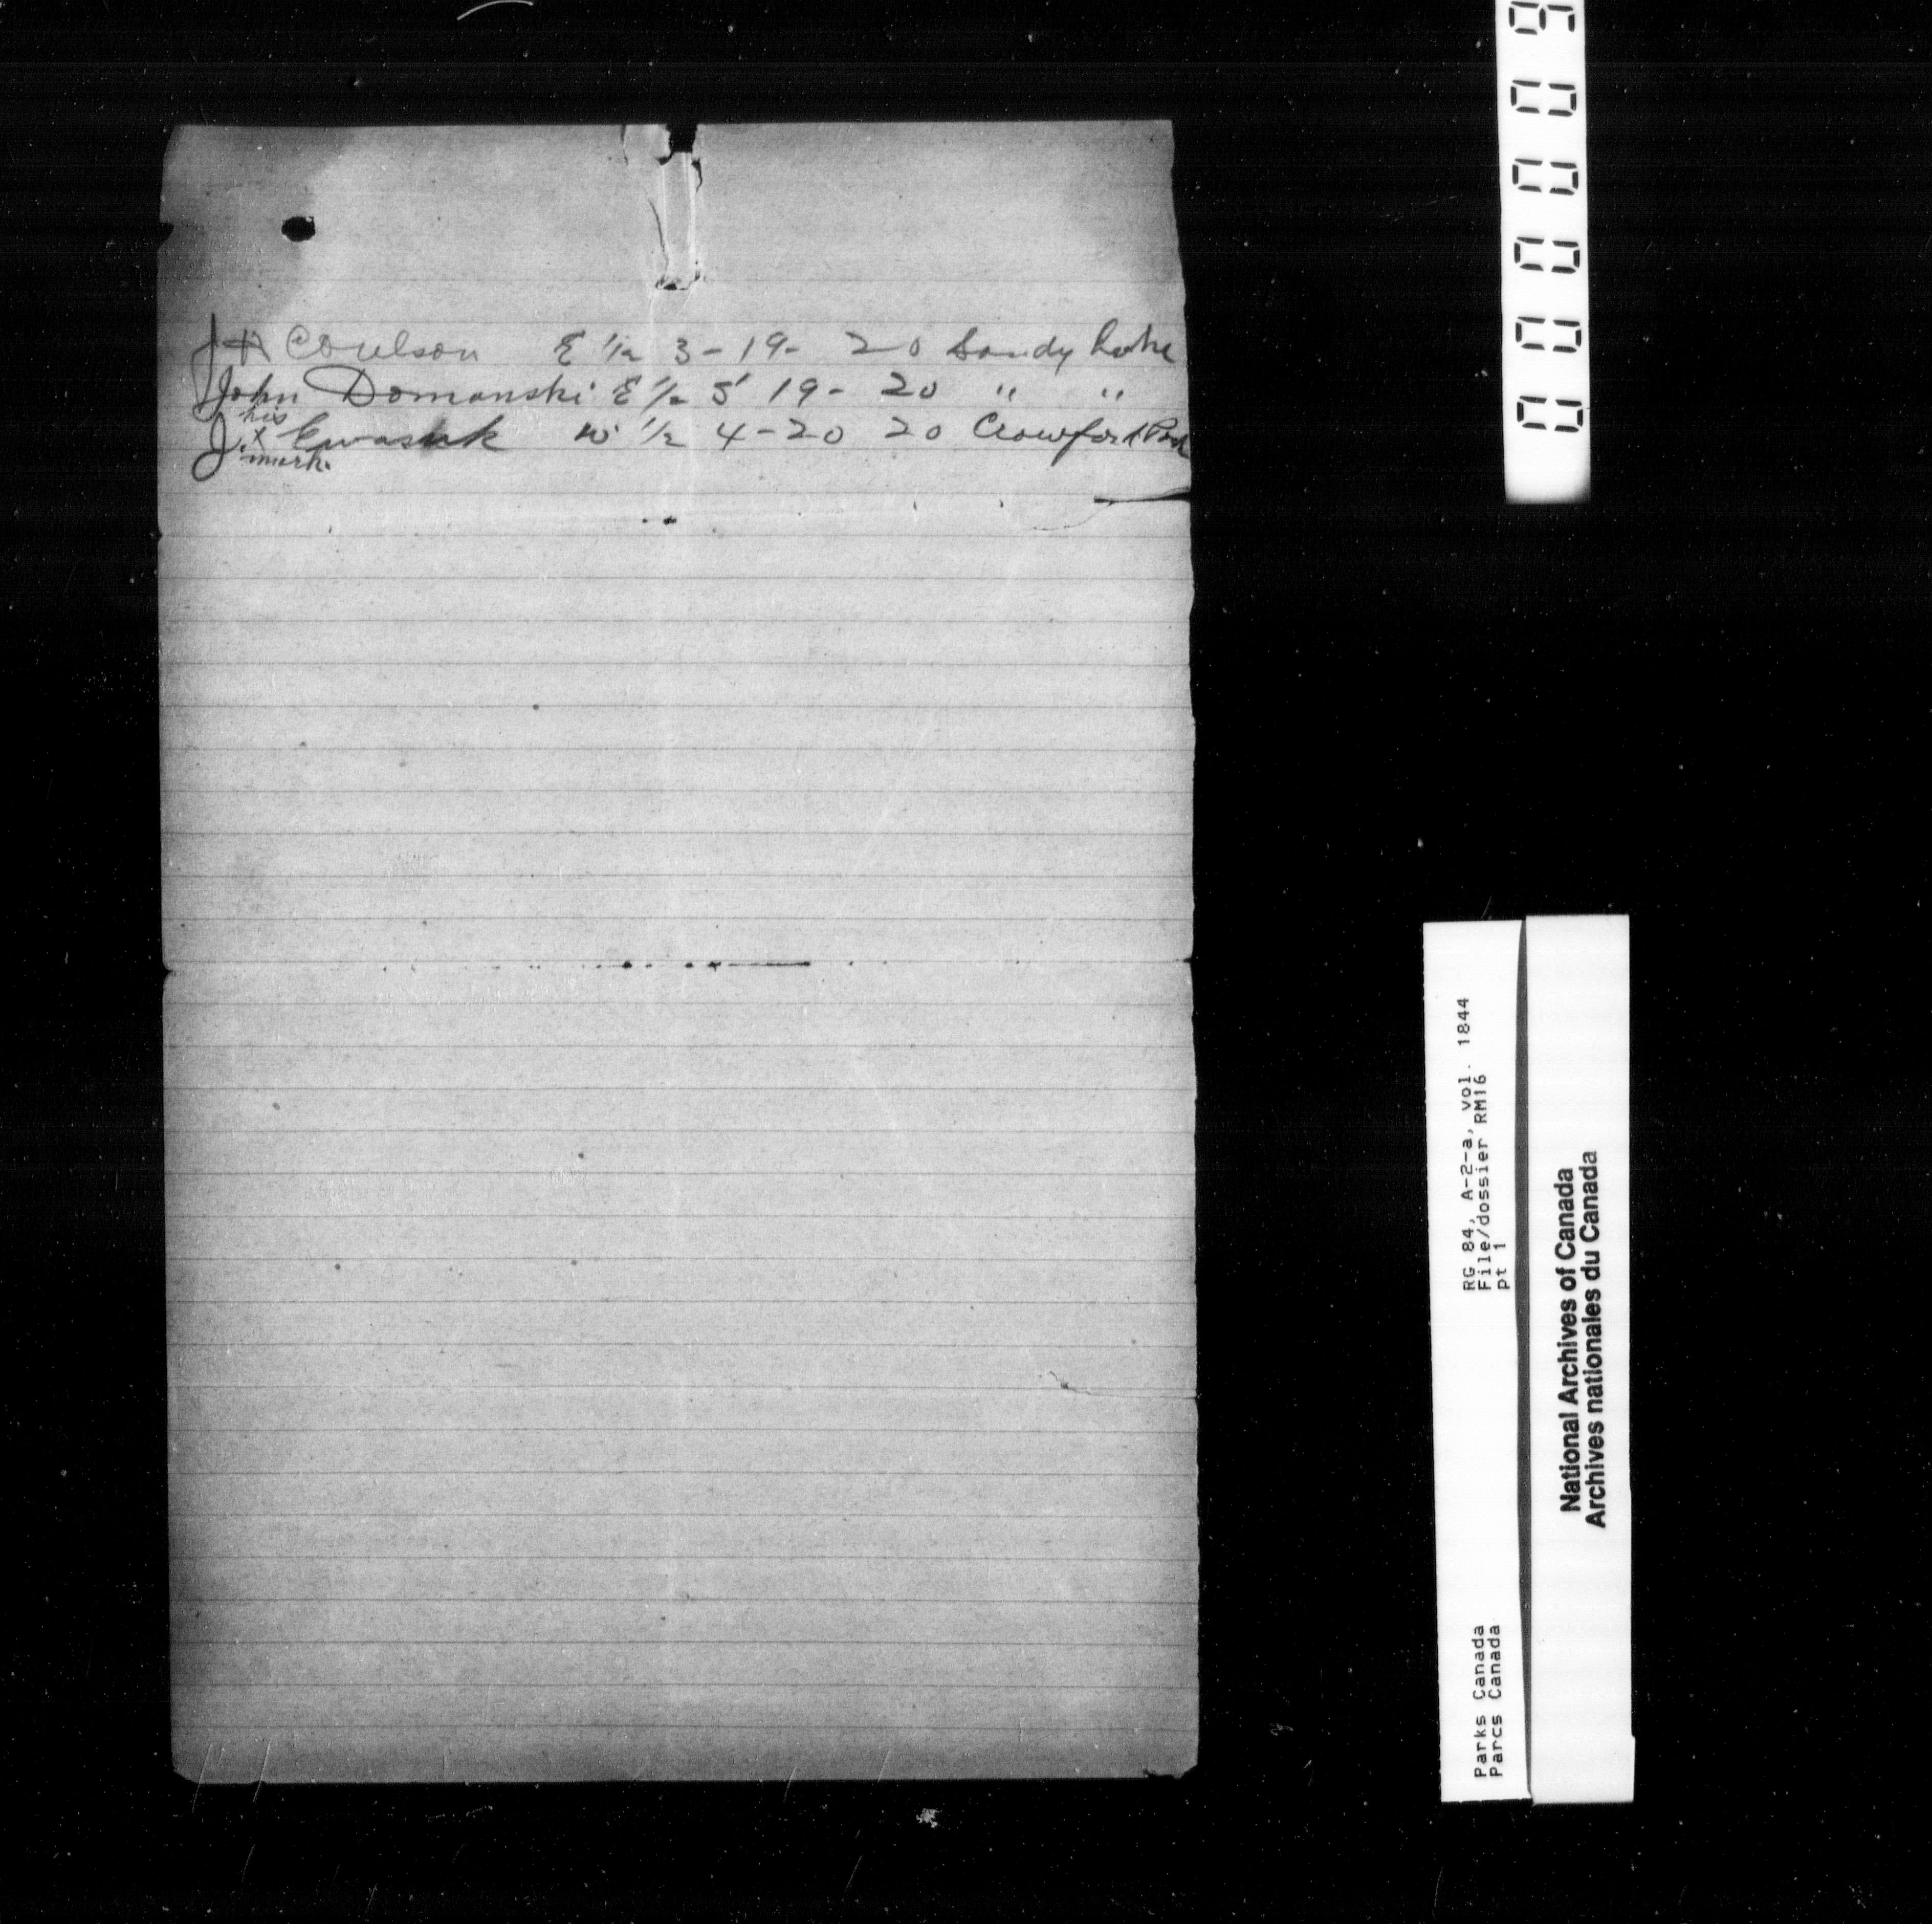 J H Coulson E 1/2 3-19- 20 Sandy Lake
John Domanski E 1/2 5 19- 20 " "
his
J. x Ewasuk W 1/2 4-20 20 Crawford Park
mark.
RG 84, A-2-a, vol. 1844
File/dossier RM16
pt 1
Parks Canada
Parcs Canada
National Archives of Canada
Archives nationales du Canada